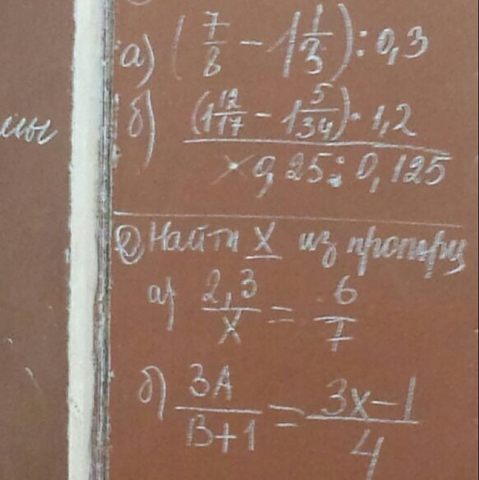 а) (7/8 - 1 1/3) : 0,3
б) (1 12/17 - 1 5/34) · 1,2
0,25 : 0,125
② Найти X из пропорц
а) 2,3/X = 6/7
б) 3A/B+1 = 3x-1/4